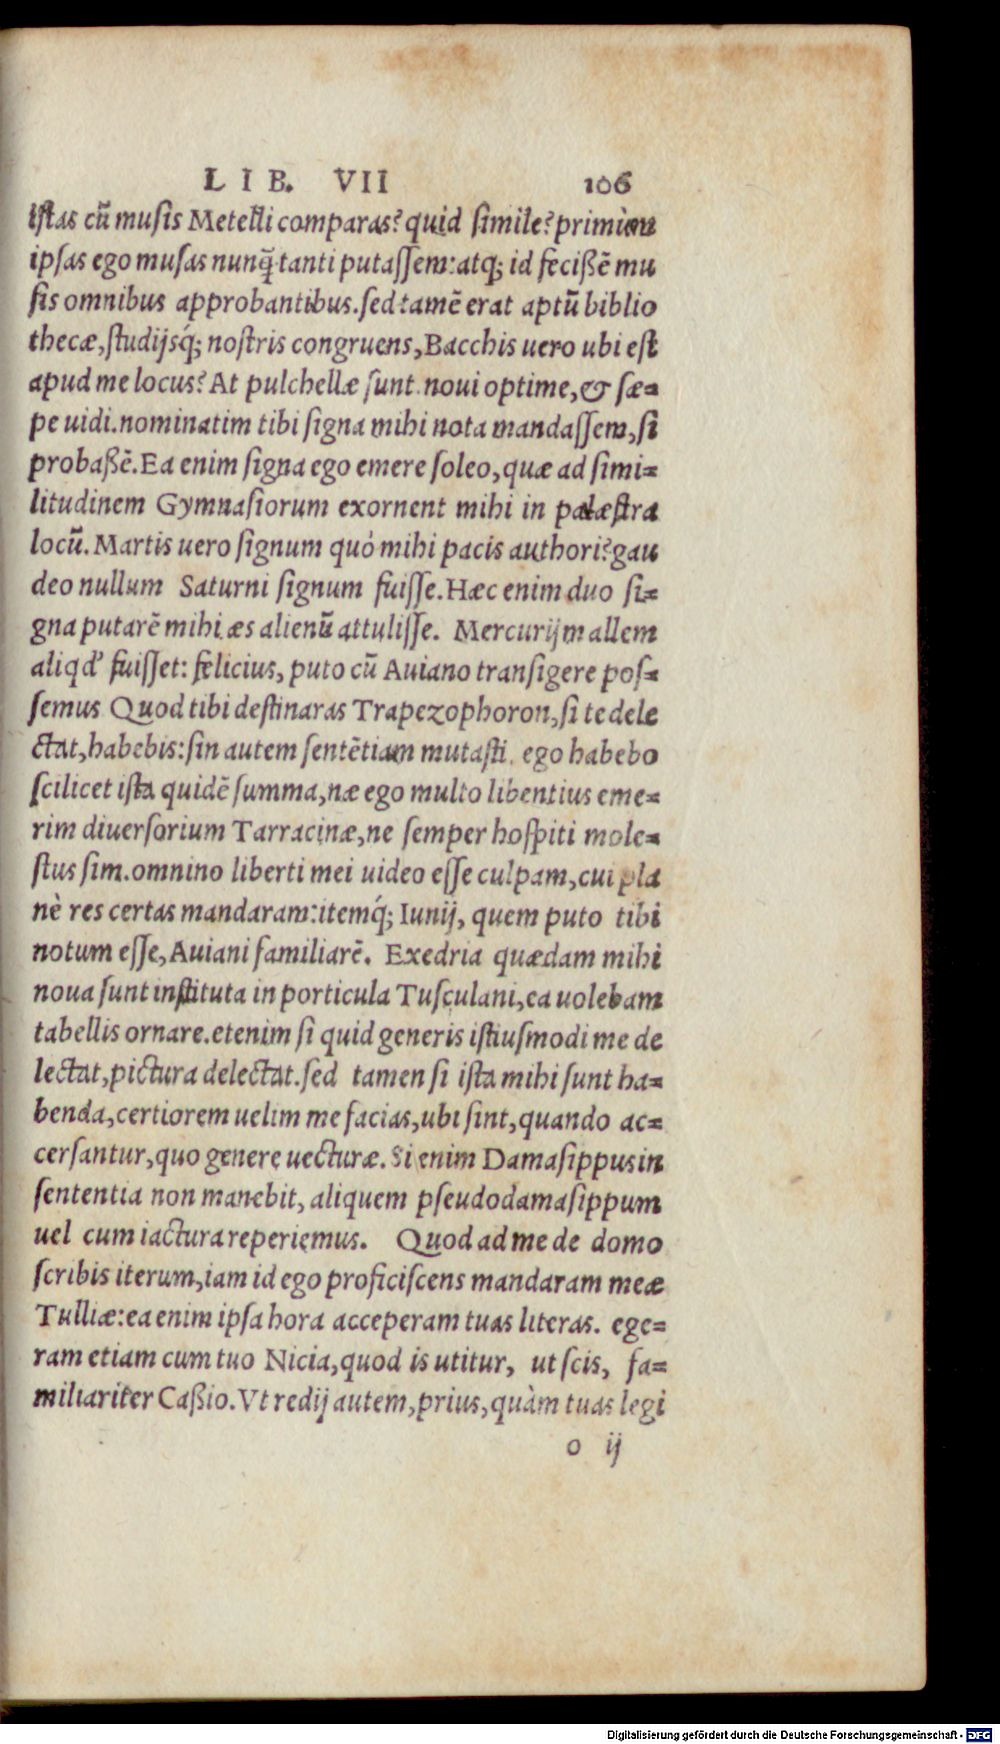 LIB. VII 106
istas cū musis Metelli comparas? quid simile? primùm
ipsas ego musas nunq̄ tanti putassem: atq; id fecißē mu
sis omnibus approbantibus. sed tamē erat aptū biblio
thecæ, studijsq́; nostris congruens, Bacchis uero ubi est
apud me locus? At pulchellæ sunt. noui optime, & sæ=
pe uidi. nominatim tibi signa mihi nota mandassem, si
probaßē. Ea enim signa ego emere soleo, quæ ad simi=
litudinem Gymnasiorum exornent mihi in palæstra
locū. Martis uero signum quó mihi pacis authori? gau
deo nullum Saturni signum fuisse. Hæc enim duo si=
gna putarē mihi æs alienū attulisse. Mercurij mallem
aliqd' fuisset: felicius, puto cū Auiano transigere pos=
semus Quod tibi destinaras Trapezophoron, si te dele
ctat, habebis: sin autem sentētiam mutasti. ego habebo
scilicet ista quidē summa, næ ego multo libentius eme=
rim diuersorium Tarracinæ, ne semper hospiti mole=
stus sim. omnino liberti mei uideo esse culpam, cui pla
nè res certas mandaram: itemq́; Iunij, quem puto tibi
notum esse, Auiani familiarē. Exedria quædam mihi
noua sunt instituta in porticula Tusculani, ea uolebam
tabellis ornare. etenim si quid generis istiusmodi me de
lectat, pictura delectat. sed tamen si ista mihi sunt ha=
benda, certiorem uelim me facias, ubi sint, quando ac=
cersantur, quo genere uecturæ. Si enim Damasippus in
sententia non manebit, aliquem pseudodamasippum
uel cum iactura reperiemus. Quod ad me de domo
scribis iterum, iam id ego proficiscens mandaram meæ
Tulliæ: ea enim ipsa hora acceperam tuas literas. ege=
ram etiam cum tuo Nicia, quod is utitur, ut scis, fa=
miliariter Caßio. Vt redij autem, prius, quàm tuas legi
o ij
Digitalisierung gefördert durch die Deutsche Forschungsgemeinschaft - DFG